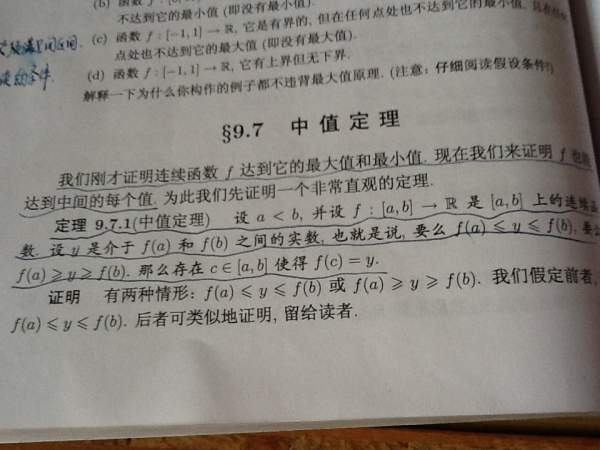 (b) 函数 f : 
不达到它的最小值 (即没有最小值).
(c) 函数 f : [-1,1] → ℝ, 它是有界的, 但在任何点处也不达到它的最小值, 且在任何
点处也不达到它的最大值 (即没有最大值).
(d) 函数 f : [-1,1] → ℝ, 它有上界但无下界.
解释一下为什么你构作的例子都不违背最大值原理. (注意: 仔细阅读假设条件!)
§9.7 中值定理
我们刚才证明连续函数 f 达到它的最大值和最小值. 现在我们来证明 f 也能
达到中间的每个值. 为此我们先证明一个非常直观的定理.
定理 9.7.1(中值定理) 设 a < b, 并设 f : [a,b] → ℝ 是 [a,b] 上的连续函
数. 设 y 是介于 f(a) 和 f(b) 之间的实数, 也就是说, 要么 f(a) ⩽ y ⩽ f(b), 要么
f(a) ⩾ y ⩾ f(b). 那么存在 c ∈ [a,b] 使得 f(c) = y.
证明 有两种情形: f(a) ⩽ y ⩽ f(b) 或 f(a) ⩾ y ⩾ f(b). 我们假定前者,
f(a) ⩽ y ⩽ f(b). 后者可类似地证明, 留给读者.